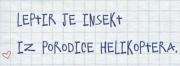 LEPTIR JE INSEKT
IZ PORODICE HELIKOPTERA.